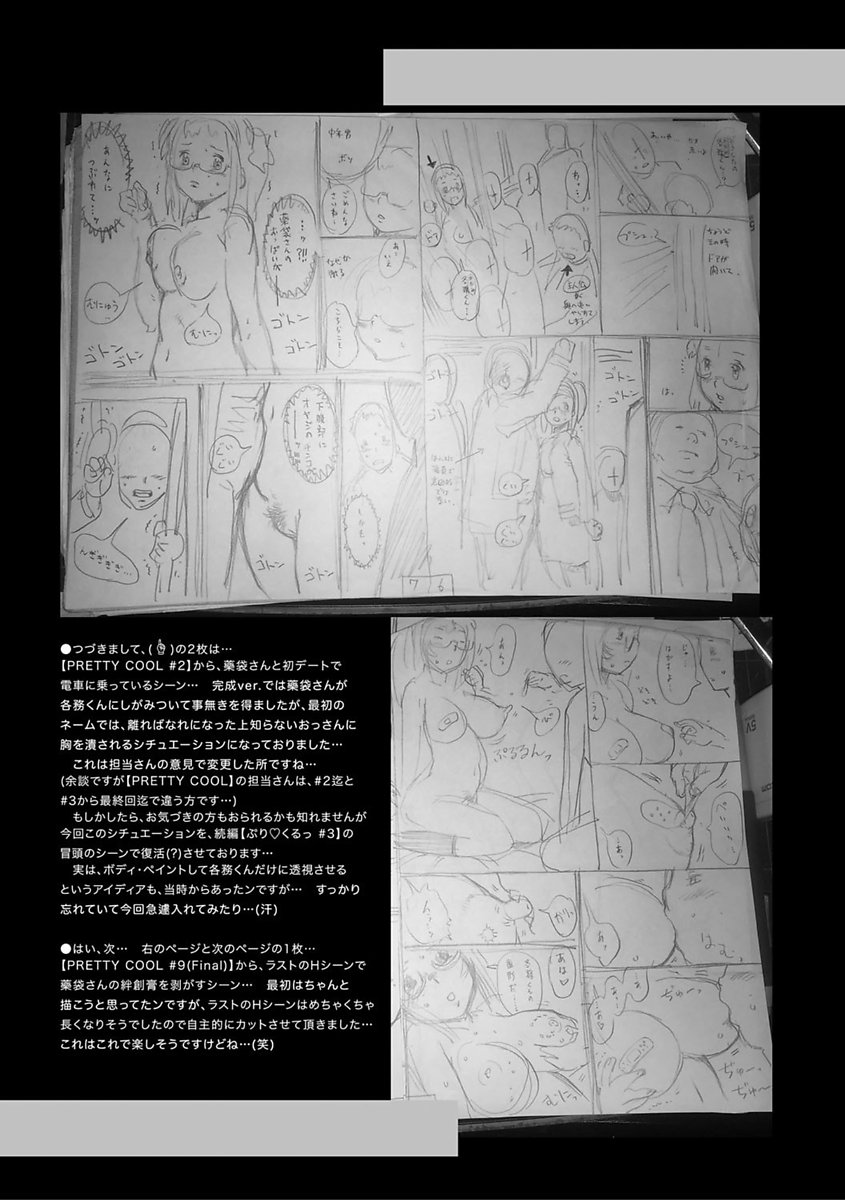 おいや
ちょうど
その時
ドアが
開いて。
プシュー
は、
わっ…
ゴトン
ゴトン
ゴトン
ゴトン
中年男
ごめんな
さいね…
なぜか
謝る
あ…
いえ
こちらこそ…
…ッ?!!
薬袋さんの
おっぱいが
あんなに
つぶれて…ッ
むにゅう
むにっ
ゴトン
ゴトン
ゴトン
ゴトン
しかも…
下腹部に
ぐい
ぐい
ゴトン
ゴトン
んぎぎぎぎ…
7
6
●つづきまして、( )の2枚は…
【PRETTY COOL #2】から、薬袋さんと初デートで
電車に乗っているシーン… 完成ver.では薬袋さんが
各務くんにしがみついて事無きを得ましたが、最初の
ネームでは、離ればなれになった上知らないおっさんに
胸を潰されるシチュエーションになっておりました…
これは担当さんの意見で変更した所ですね…
(余談ですが【PRETTY COOL】の担当さんは、#2迄と
#3から最終回迄で違う方です…)
もしかしたら、お気づきの方もおられるかも知れませんが
今回このシチュエーションを、続編【ぷり♡くるっ #3】の
冒頭のシーンで復活(?)させております…
実は、ボディ・ペイントして各務くんだけに透視させる
というアイディアも、当時からあったンですが… すっかり
忘れていて今回急遽入れてみたり…(汗)
●はい、次… 右のページと次のページの1枚…
【PRETTY COOL #9(Final)】から、ラストのHシーンで
薬袋さんの絆創膏を剥がすシーン… 最初はちゃんと
描こうと思ってたンですが、ラストのHシーンはめちゃくちゃ
長くなりそうでしたので自主的にカットさせて頂きました…
これはこれで楽しそうですけどね…(笑)
ぷるるんっ
…あ。
あっ
はむ…
カリッ
あは♡
ぢゅーっ
ぢゅーっ
ぢゅ〜
むにっ
5V